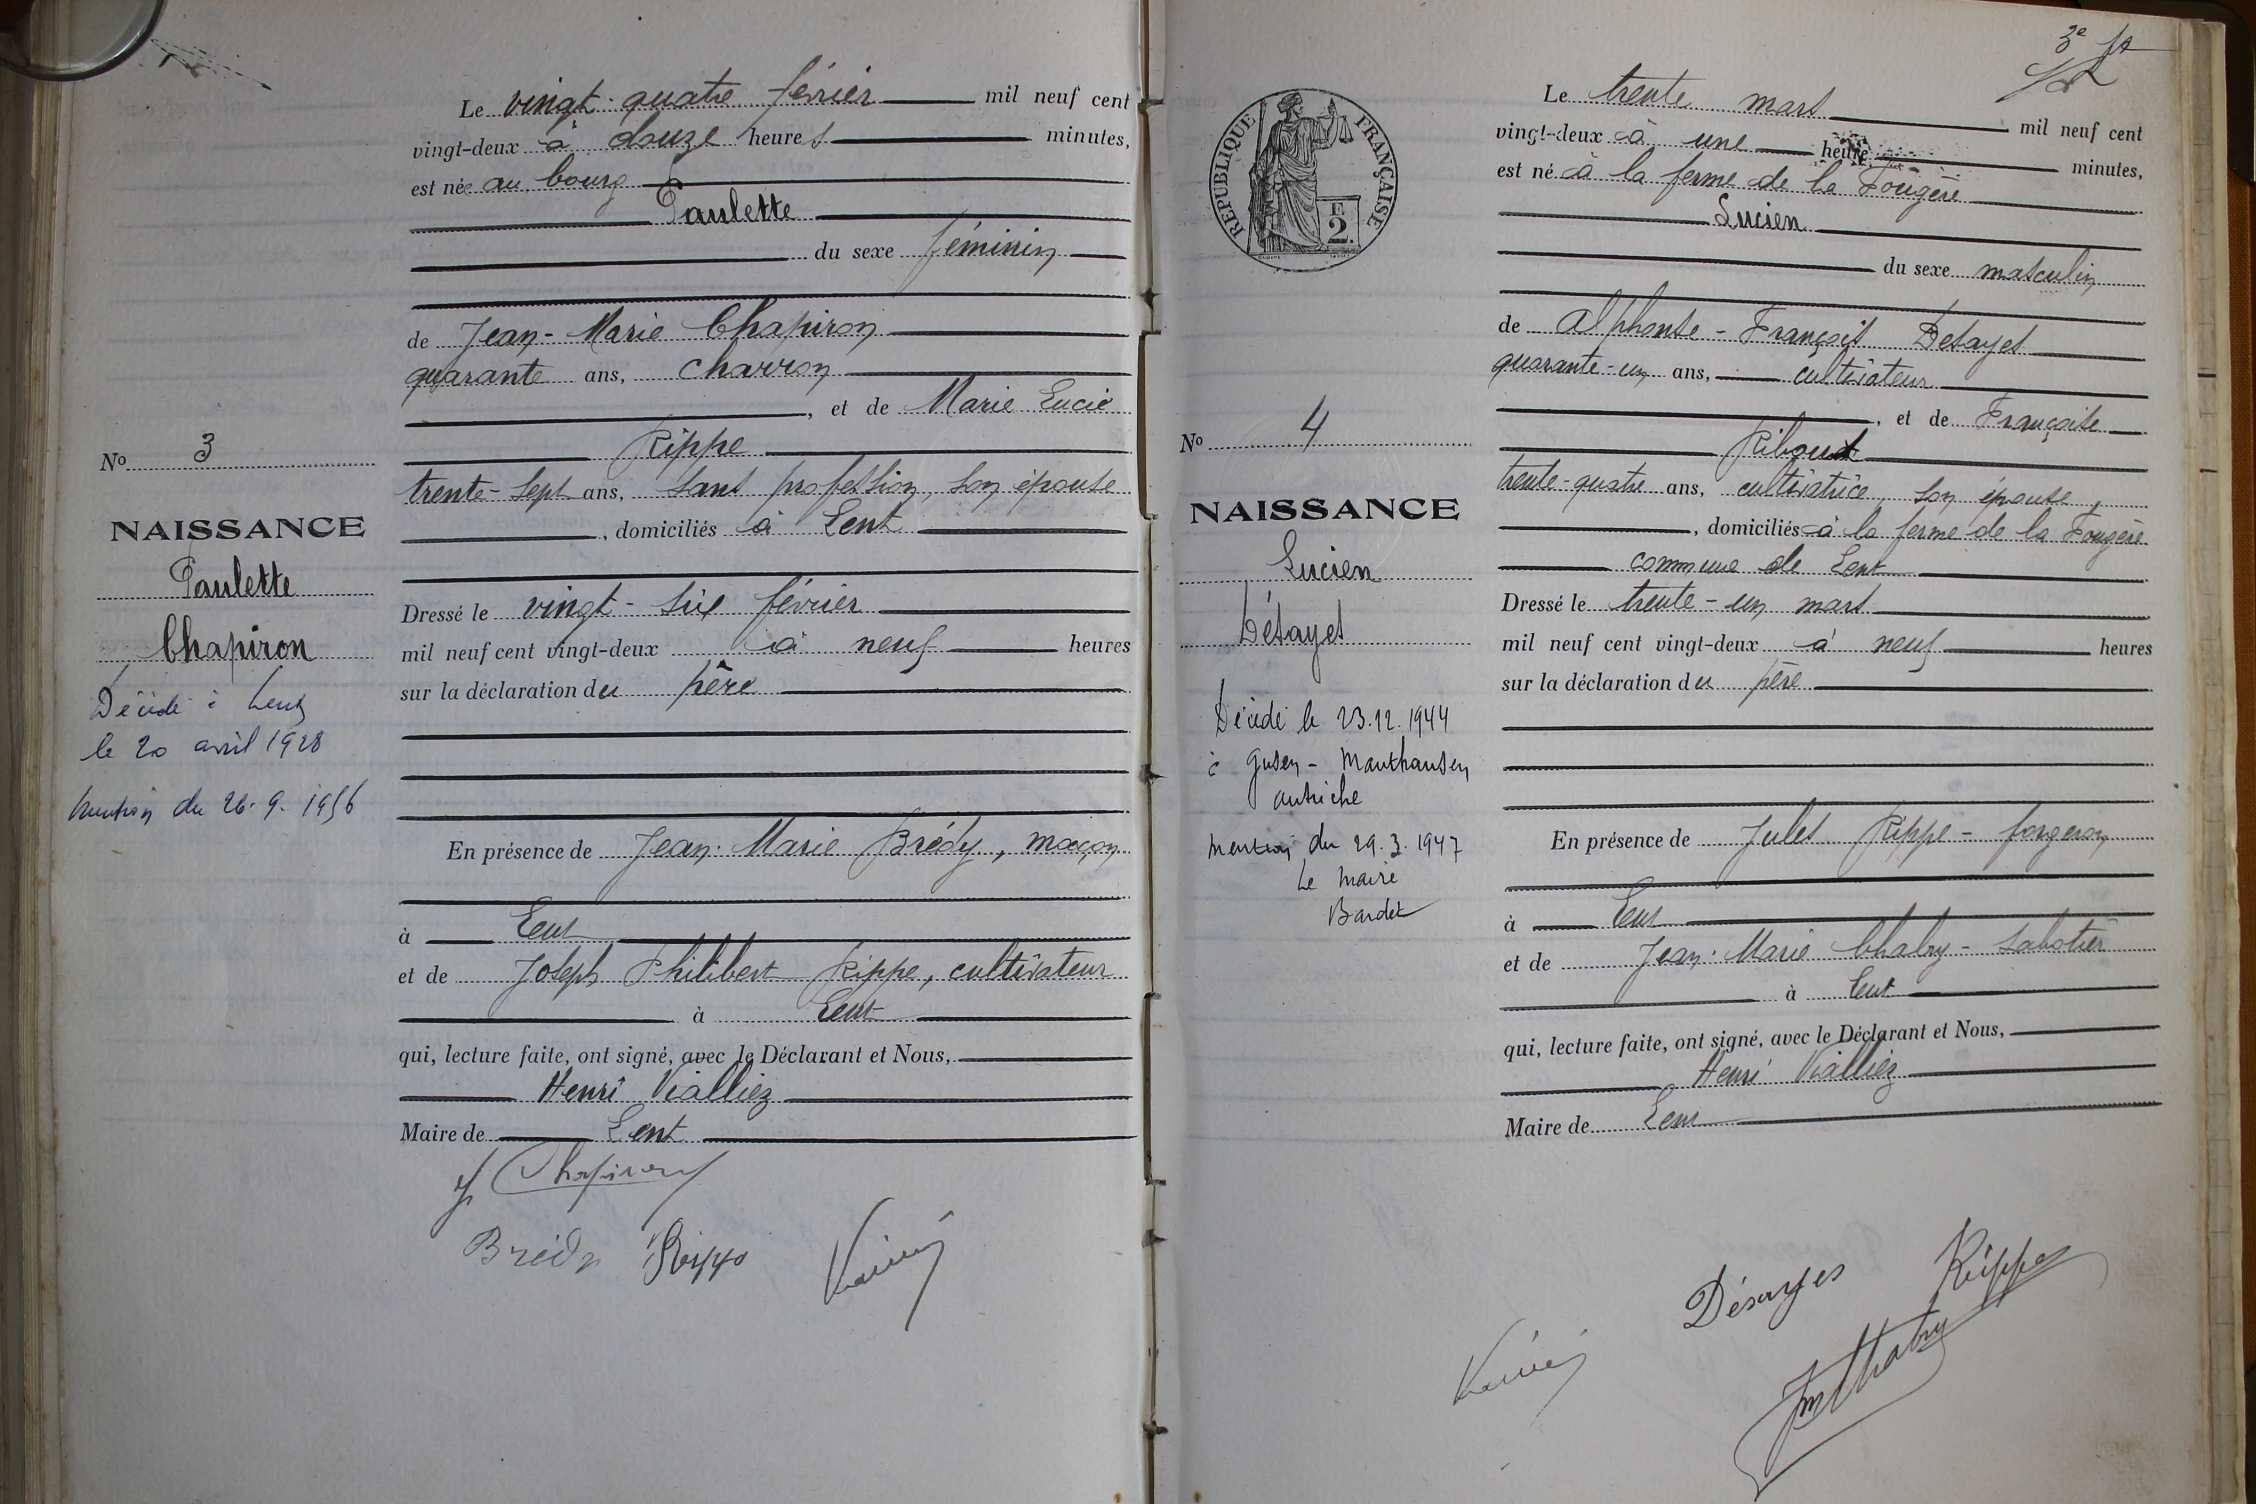 Le vingt-quatre février mil neuf cent
vingt-deux à douze heures minutes,
est née au bourg
Paulette
du sexe féminin
de Jean-Marie Chapiron
quarante ans, charron
, et de Marie Lucie
Rippe
trente-sept ans, sans profession, son épouse
, domiciliés à Lent
Dressé le vingt-six février
mil neuf cent vingt-deux à neuf heures
sur la déclaration du père
En présence de Jean-Marie Brédy, maçon
à Lent
et de Joseph Philibert Rippe, cultivateur
à Lent
qui, lecture faite, ont signé, avec le Déclarant et Nous,
Henri Vialliez
Maire de Lent
Chapiron
Brédy Rippe
No 3
NAISSANCE
Paulette
Chapiron
Décédé à Lent
le 20 avril 1928
mention du 26.9.1956
3e
RÉPUBLIQUE FRANÇAISE
E
2.
Le trente mars mil neuf cent
vingt-deux à une heure minutes,
est né à la ferme de la Fougère
Lucien
du sexe masculin
de Alphonse-François Désayes
quarante-un ans, cultivateur
, et de Françoise
Riboud
trente-quatre ans, cultivatrice, son épouse,
, domiciliés à la ferme de la Fougère
commune de Lent
Dressé le trente-un mars
mil neuf cent vingt-deux à neuf heures
sur la déclaration du père
En présence de Jules Rippe - forgeron
à Lent
et de Jean-Marie Chabry - sabotier
à Lent
qui, lecture faite, ont signé, avec le Déclarant et Nous,
Henri Vialliez
Maire de Lent
Désayes Rippe
Jm Chabry
No 4
NAISSANCE
Lucien
Désayes
Décédé le 23.12.1944
à Gusen - Mauthausen
autriche
mention du 29.3.1947
Le Maire
Bardet